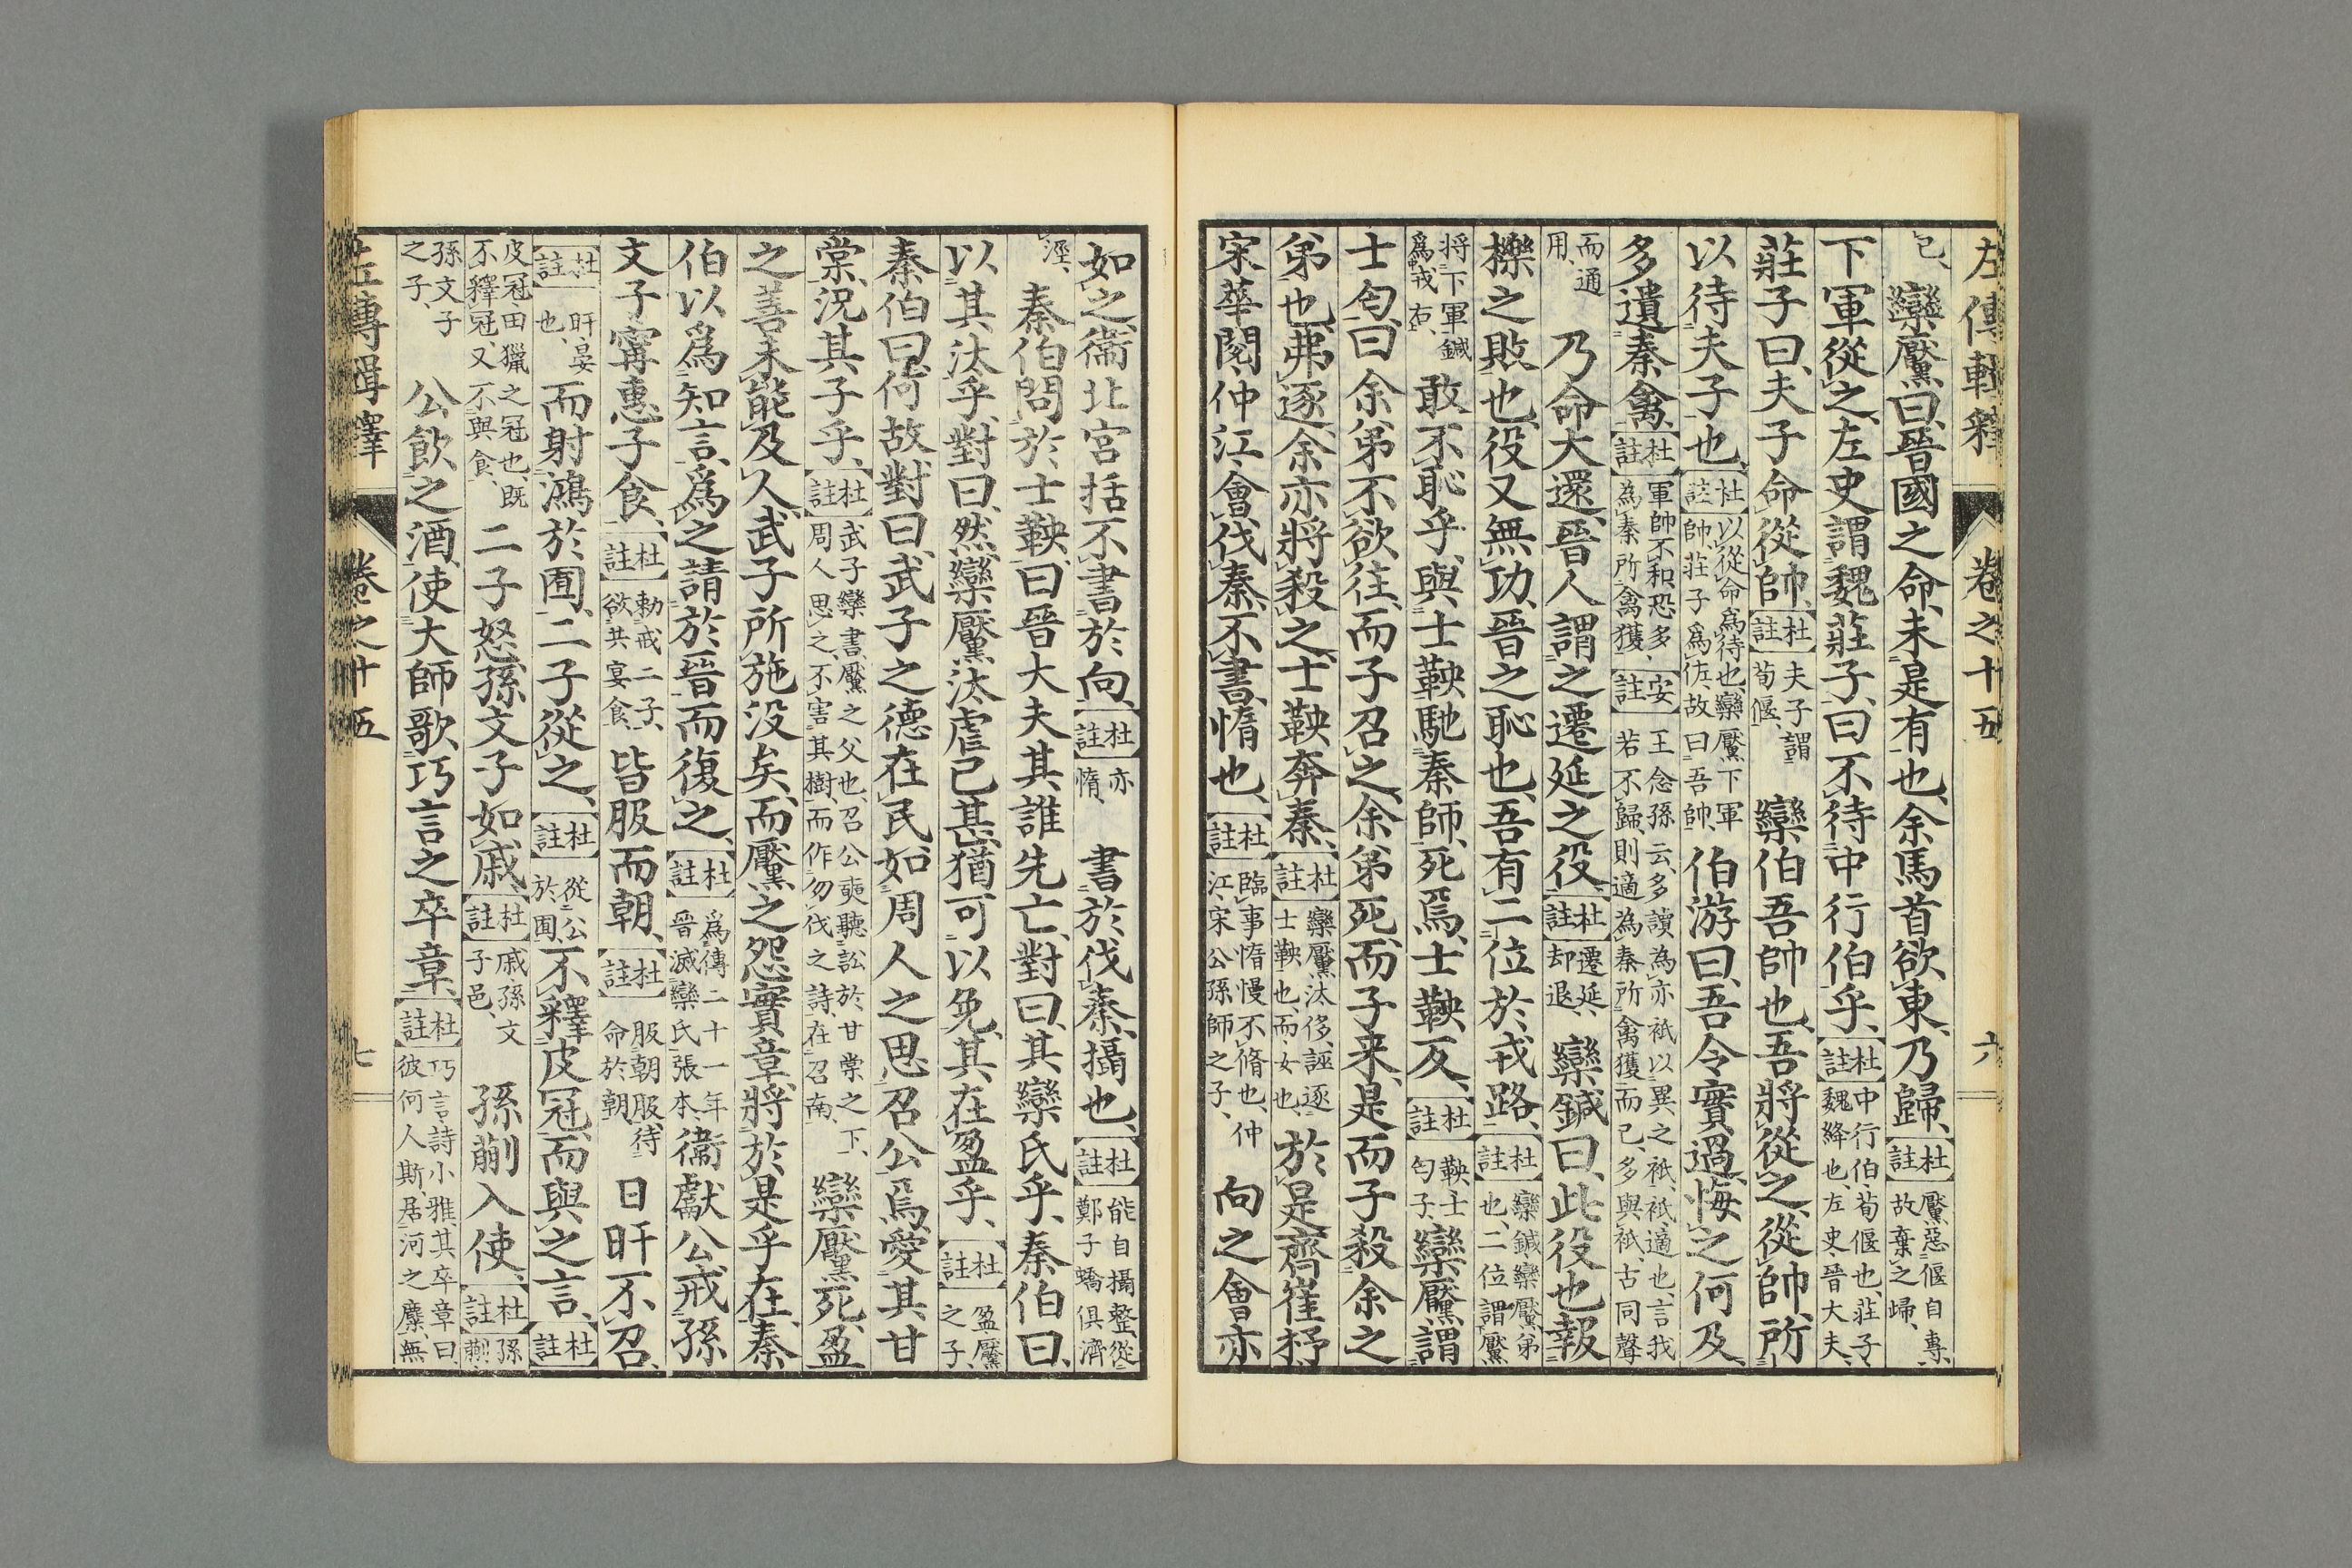 左傳輯釋 卷之十五 六
已、欒黶曰、晉國之命、未是有也、余馬首欲東、乃歸、杜註黶惡偃自專、故棄之歸、
下軍從之、左史謂魏莊子曰、不待中行伯乎、杜註中行伯、荀偃也、莊子、魏絳也、左史、晉大夫、
莊子曰、夫子命從帥、杜註夫子謂荀偃、欒伯吾帥也、吾將從之、從帥、所
以待夫子也、杜註以從命爲待也、欒黶下軍帥、莊子爲佐、故曰吾帥、伯游曰、吾令實過、悔之何及、
多遺秦禽、杜註軍帥不和、恐多爲秦所禽獲、安註王念孫云、多讀為亦祇以異之祇、祇、適也、言我若不歸、則適為秦所禽獲而已、多與祇、古同聲
而通用、乃命大還、晉人謂之遷延之役、杜註遷延、却退、欒鍼曰、此役也、報
櫟之敗也、役又無功、晉之恥也、吾有二位於戎路、杜註欒鍼、欒黶弟也、二位、謂黶
將下軍、鍼爲戎右、敢不恥乎、與士鞅馳秦師、死焉、士鞅反、杜註鞅、士匄子、欒黶謂
士匄曰、余弟不欲往、而子召之、余弟死、而子来、是而子殺余之
弟也、弗逐、余亦將殺之、士鞅奔秦、杜註欒黶汰侈、誣逐士鞅也、而、女也、於是齊崔抒
宋華閱、仲江會伐秦、不書、惰也、杜註臨事惰慢不脩也、仲江、宋公孫師之子、向之會亦
如之、衞北宮括不書於向、杜註亦惰、書於伐秦、攝也、杜註能自攝整、從鄭子蟜俱濟
涇、秦伯問於士鞅曰、晉大夫其誰先亡、對曰、其欒氏乎、秦伯曰、
以其汰乎、對曰、然、欒黶汰虐已甚、猶可以免、其在盈乎、杜註盈、黶之子、
秦伯曰、何故、對曰、武子之德在民、如周人之思召公焉、愛其甘
棠、況其子乎、杜註武子、欒書、黶之父也、召公奭聽訟於甘棠之下、周人思之、不害其樹、而作勿伐之詩、在召南、欒黶死、盈
之善未能及人、武子所施没矣、而黶之怨實章、將於是乎在、秦
伯以爲知言、爲之請於晉而復之、杜註爲傳二十一年晉滅欒氏張本、衞獻公戒孫
文子甯惠子食、杜註勑戒二子、欲共宴食、皆服而朝、杜註服朝服、待命於朝、日旰不召、
杜註旰、晏也、而射鴻於囿、二子從之、杜註從公於囿、不釋皮冠、而與之言、杜註
皮冠、田獵之冠也、既不釋冠、又不與食、二子怒、孫文子如戚、杜註戚、孫文子邑、孫蒯入使、杜註孫蒯、
孫文子之子、公飮之酒、使大師歌巧言之卒章、杜註巧言、詩小雅、其卒章曰、彼何人斯、居河之麋、無
左傳輯釋 卷之十五 七